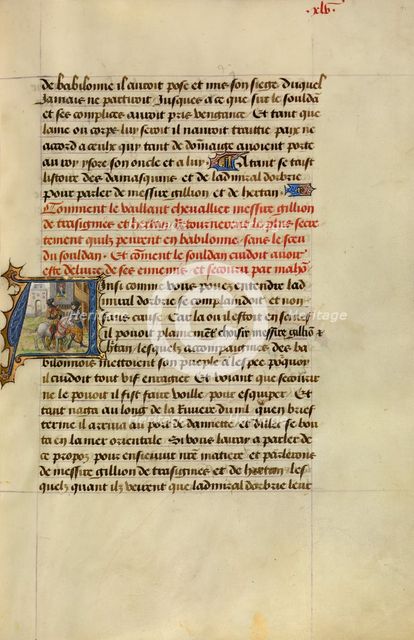 xlv
de babilonne il auroit pose et mis son siege duquel
Jamais ne partiroit Jusques a ce que sur le souldan
et ses complices auroit pris vengance Et tant que
lame ou corps luy seroit il nauroit traittie paix ne
accord a ceulx quy tant de dommaige auoient porte
au roy ysore son oncle et a luy A tant se taist
listoire des damasquins et de ladmiral dorbrie
pour parler de messire gillion et de hertan
Comment le vaillant chevallier messire gillion
de trasignies et hertan Retournerent le plus secre
tement quilz peurent en babilonne sans le sceu
du souldan Et coment le souldan cuidoit auoir
este deliure de ses ennemis et secouru par mahom
Ainsi comme vous pouez entendre lad
miral dorbrie se complaindoit et non
sans cause Car la ou il estoit en se
il pouoit plainement choisir messire gillion et
hertan lesquelz accompaigniez des ba
bilonnois mettoient son peuple a lespee pourquoy
il cuidoit tout vif enragier Et voiant que secourir
ne le pouoit il fist faire voille pour esquiper Et
tant naga au long de la Riuiere du nil quen brief
terme il arriua au port de damiette et dillec se bou
ta en la mer orientale Si vous lairay a parler de
ce propoz pour ensieuuir nostre matiere et parlerons
de messire gillion de trasignies et de hertan les
quelz quant ilz veirent que ladmiral dorbrie leur
Heritage